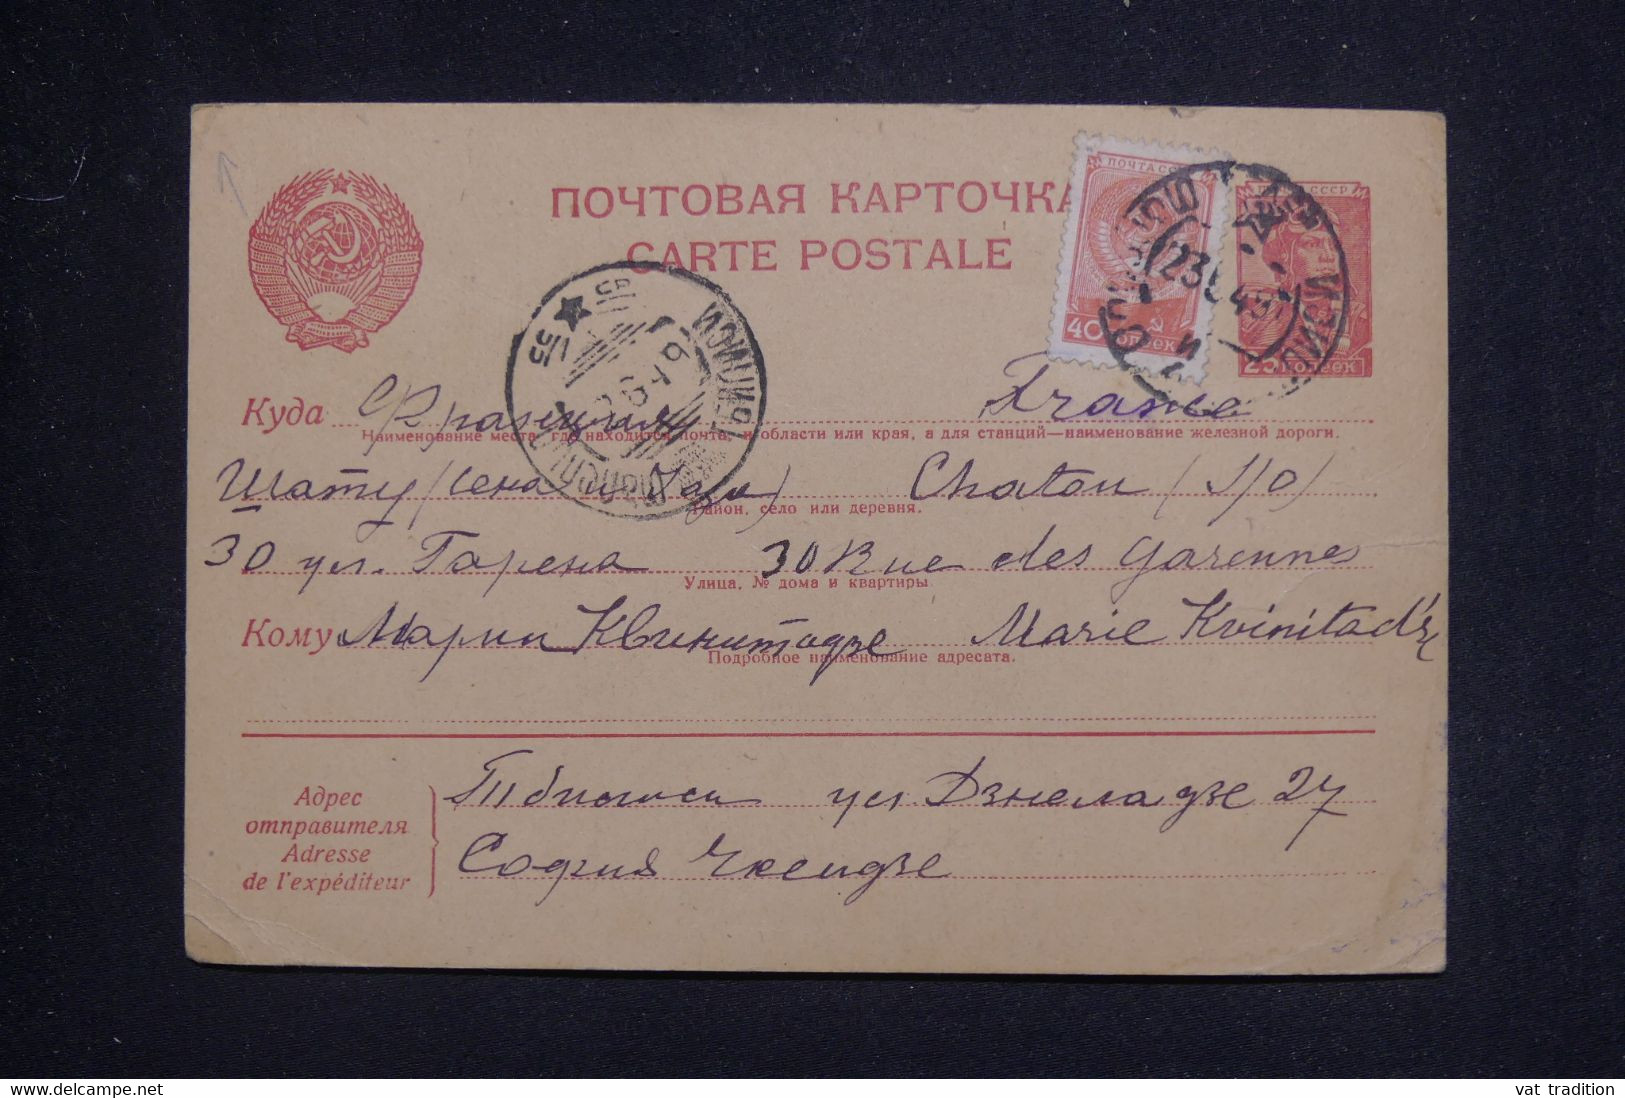 ПОЧТОВАЯ КАРТОЧКА
CARTE POSTALE
ПОЧТА СССР
40 КОПЕЕК
25 КОПЕЕК
55
Куда Франция France
Наименование места, где находится почта, и области или края, а для станций—наименование железной дороги.
Шату (Сена и Уаза) Chatou (S/O)
Район, село или деревня.
30 ул. Гарена 30 Rue des Garennes
Улица, № дома и квартиры
Кому Марии Квинитадзе Marie Kvinitadzé
Подробное наименование адресата.
Адрес
отправителя
Adresse
de l'expéditeur
Тбилиси ул Дзнеладзе 27
София Чкеидзе
vat tradition